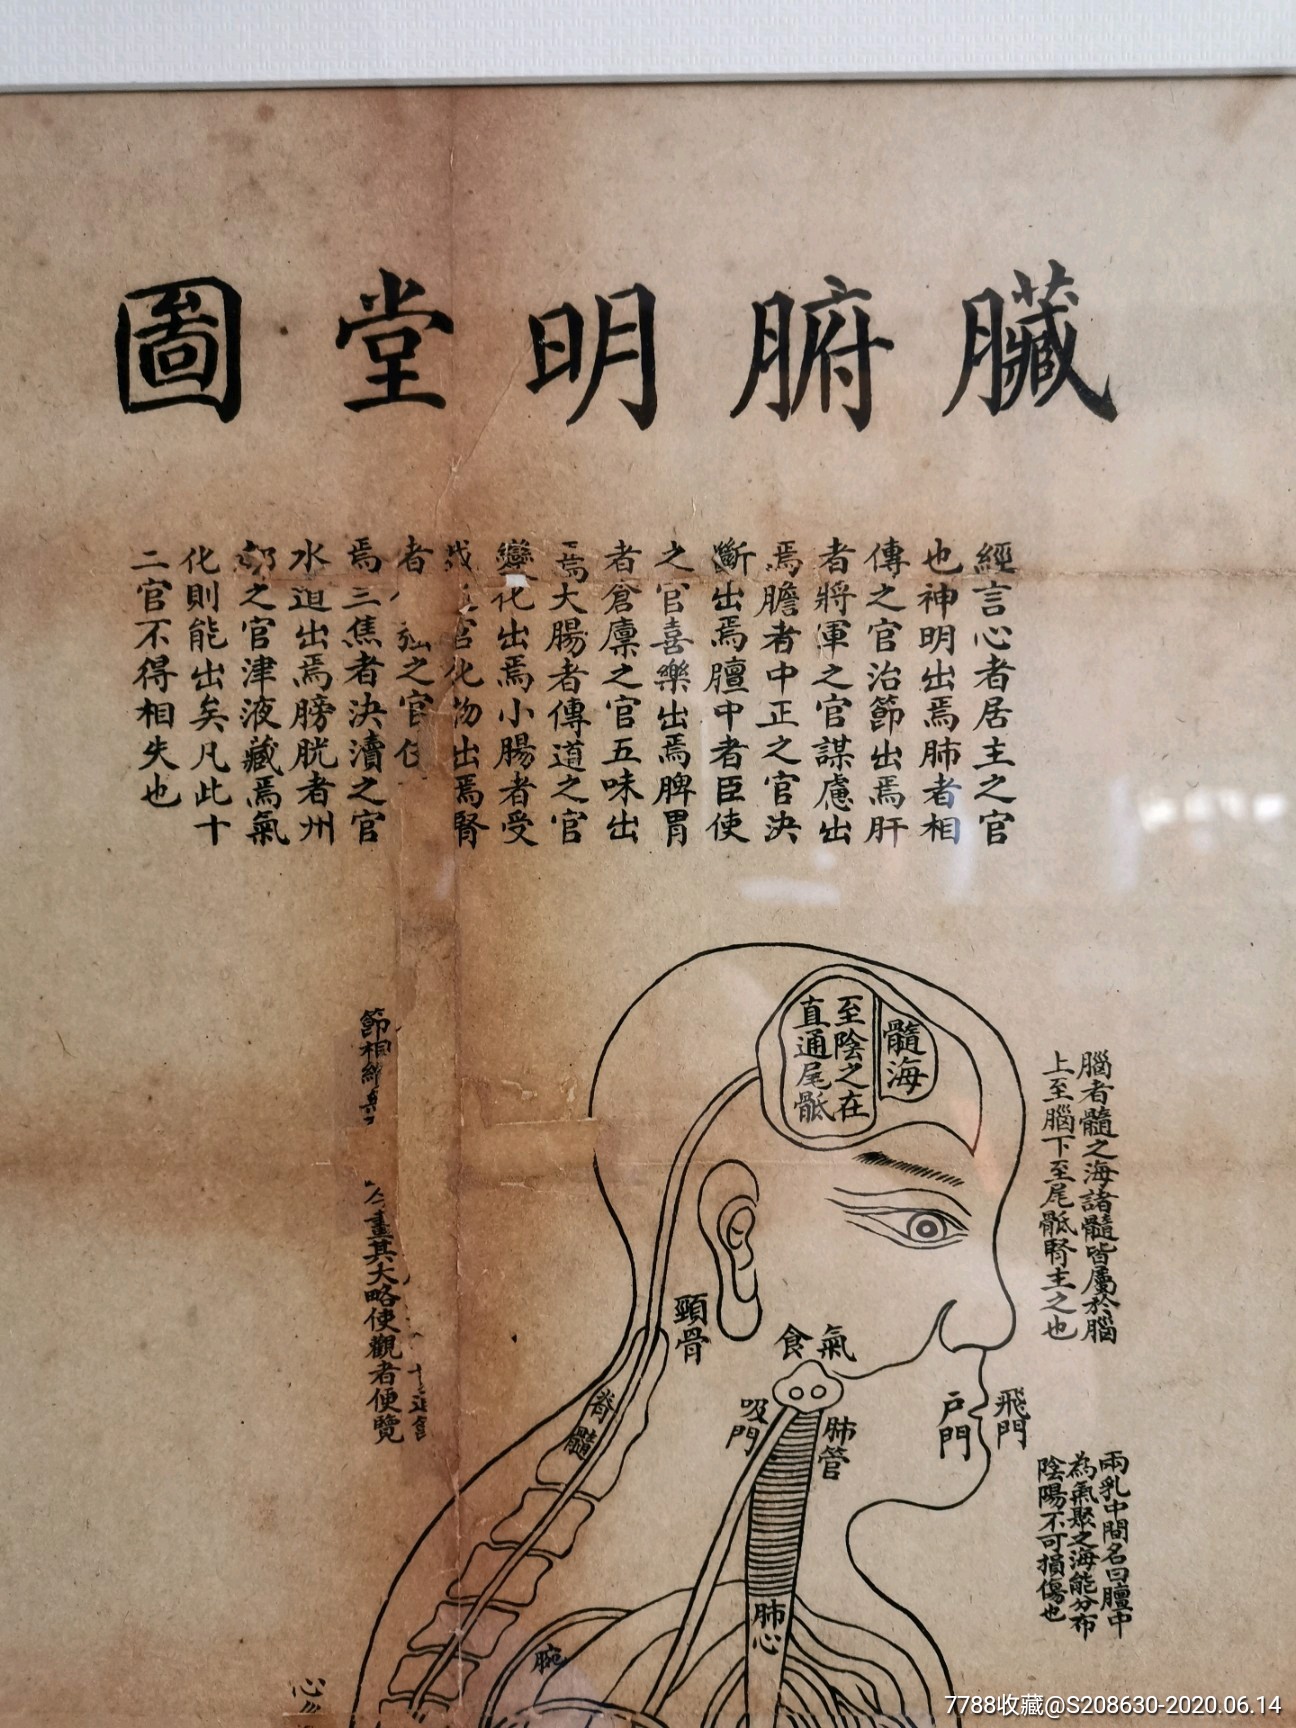 臟腑明堂圖
經言心者居主之官
也神明出焉肺者相
傳之官治節出焉肝
者將軍之官謀慮出
焉膽者中正之官決
斷出焉膻中者臣使
之官喜樂出焉脾胃
者倉廩之官五味出
焉大腸者傳道之官
變化出焉小腸者受
官化物出焉腎
者 之官
焉三焦者決瀆之官
水道出焉膀胱者州
之官津液藏焉氣
化則能出矣凡此十
二官不得相失也
髓海
至陰之在
直通尾骶
腦者髓之海諸髓皆屬於腦
上至腦下至尾骶腎主之也
節相
畫其大略使觀者便覽
頸骨
氣
食
吸門
肺管
戶門
飛門
脊髓
兩乳中間名曰膻中
為氣聚之海能分布
陰陽不可損傷也
肺心
腕
心
7788收藏@S208630-2020.06.14